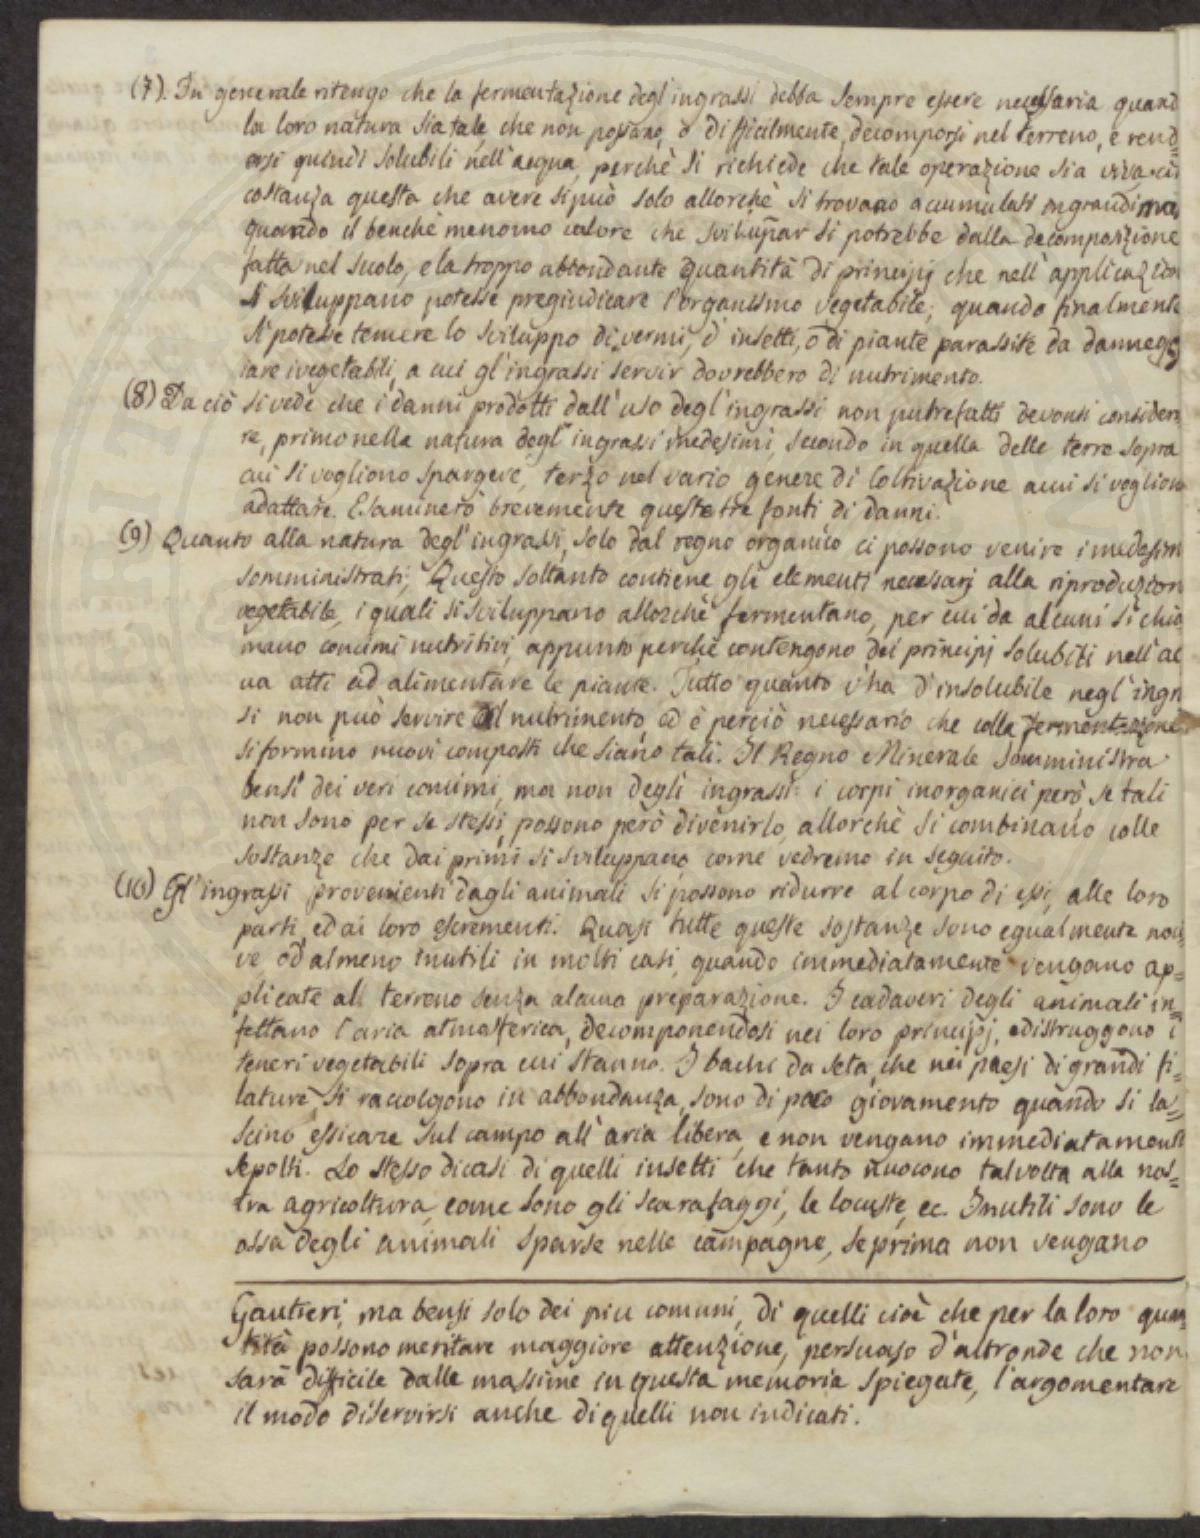 (7). In generale ritengo che la fermentazione degl'ingrassi debba sempre essere necessaria quand
la loro natura sia tale, che non possano, o difficilmente, decomporsi nel terreno, e rend=
ersi quindi solubili nell'acqua, perchè si richiede che tale operazione sia vivace
costanza questa che avere si può solo allorchè si trovano accumulati in grandi ma
quando il benchè menomo calore che sviluppar si potrebbe dalla decomposizione
fatta nel suolo, e la troppo abbondante quantità di principj che nell'applicazion
si sviluppano potesse pregiudicare l'organismo vegetabile; quando finalmente
si potesse temere lo sviluppo di vermi, d'insetti, o di piante parassite da danneg=
iare i vegetabili, a cui gl'ingrassi servir dovrebbero di nutrimento.
(8) Da ciò si vede che i danni prodotti dall'uso degl'ingrassi non putrefatti devonsi consider
re, primo nella natura degl'ingrassi medesimi, secondo in quella delle terre sopra
cui si vogliono spargere, terzo nel vario genere di coltivazione a cui si voglion
adattare. Esaminerò brevemente queste tre fonti di danni.
(9) Quanto alla natura degl'ingrassi, solo dal regno organico ci possono venire i medesim
somministrati; Questo soltanto contiene gli elementi necessarj alla riproduzion
vegetabile, i quali si sviluppano allorchè fermentano, per cui da alcuni si chia
mano concimi nutritivi, appunto perchè contengono dei principj solubili nell'ac
ua atti ad alimentare le piante. Tutto quanto v'ha d'insolubile negl'ingra
si non può servire al nutrimento ed è perciò necessario che colla fermentazione
si formino nuovi composti che siano tali. Il Regno Minerale somministra
bensì dei veri concimi, ma non degli ingrassi: i corpi inorganici però se tali
non sono per se stessi, possono però divenirlo, allorchè si combinano colle
sostanze che dai primi si sviluppano, come vedremo in seguito.
(10) Gl'ingrassi provenienti dagli animali si possono ridurre al corpo di essi, alle loro
parti, ed ai loro escrementi. Quasi tutte queste sostanze sono egualmente noci
ve od almeno inutili in molti casi, quando immediatamente vengano ap=
plicate al terreno senza alcuna preparazione. I cadaveri degli animali in=
fettano l'aria atmosferica, decomponendosi nei loro principj, e distruggono i
teneri vegetabili sopra cui stanno. I bachi da seta, che nei paesi di grandi fi=
lature, si raccolgono in abbondanza, sono di poco giovamento quando si la=
scino essicare sul campo all'aria libera, e non vengano immediatamente
sepolti. Lo stesso dicasi di quelli insetti che tanto nuocono talvolta alla nos=
tra agricoltura, come sono gli scarafaggi, le locuste, ec. Inutili sono le
ossa degli animali sparse nelle campagne, se prima non vengano
Gautieri, ma bensì solo dei piu comuni, di quelli cioè che per la loro quan
tità possono meritare maggiore attenzione, persuaso d'altronde che non
sarà difficile dalle massime in questa memoria spiegate, l'argomentare
il modo di servirsi anche di quelli non indicati.